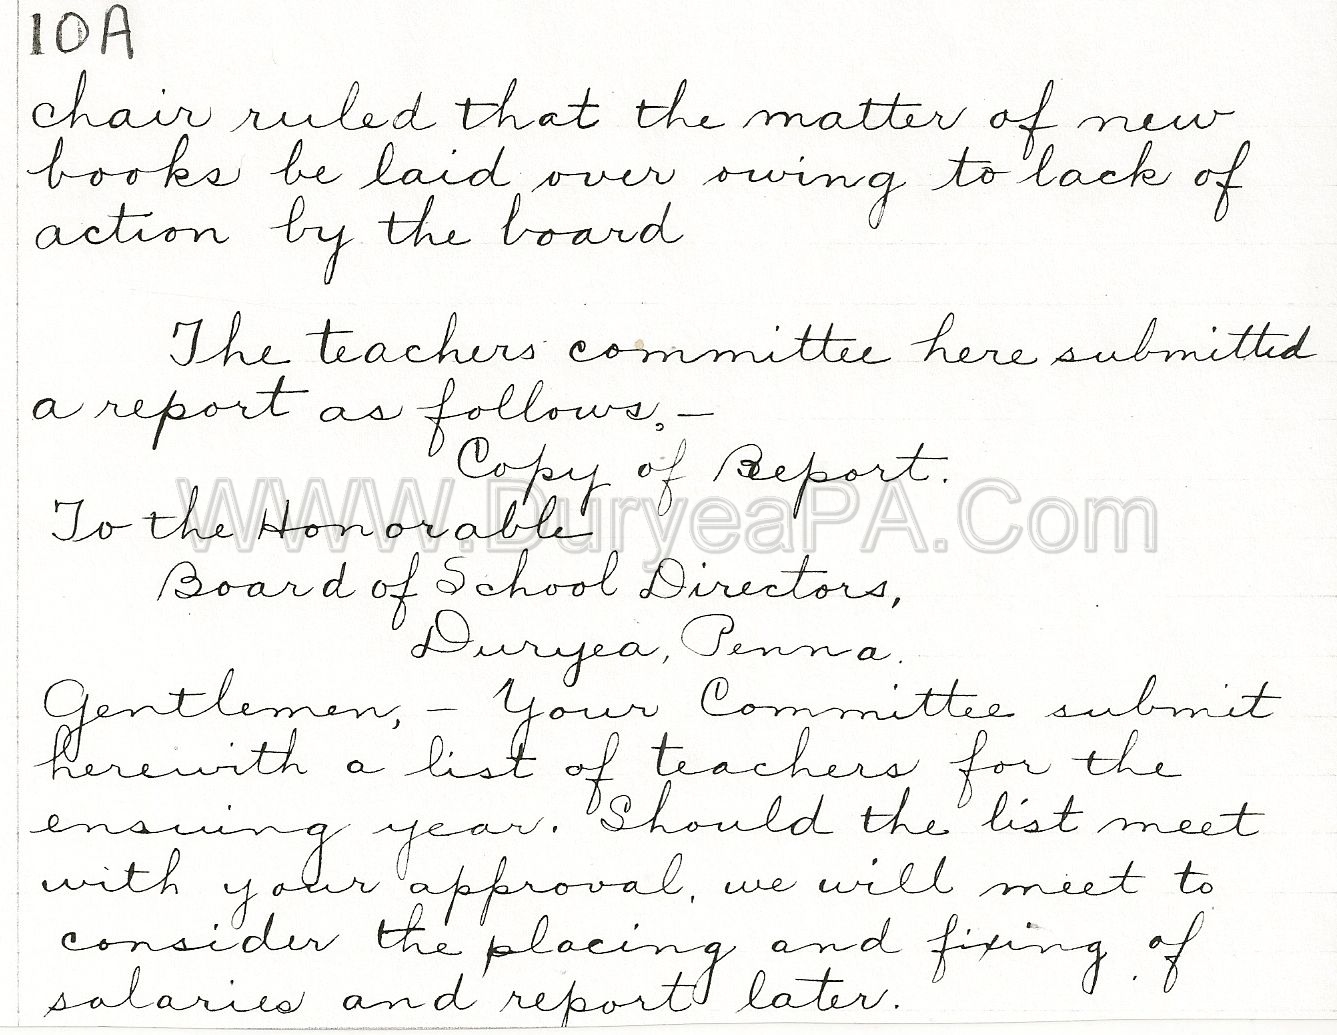 10A
chair ruled that the matter of new
books be laid over owing to lack of
action by the board
The teachers committee here submitted
a report as follows,-
Copy of Report.
WWW.DuryeaPA.Com
To the Honorable
Board of School Directors,
Duryea, Penna.
Gentlemen,- Your Committee submit
herewith a list of teachers for the
ensuing year. Should the list meet
with your approval, we will meet to
consider the placing and fixing of
salaries and report later.